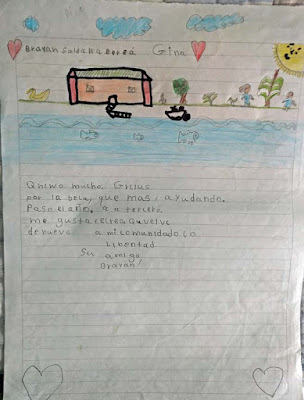 Brayan Saldaña Gina
Qniwa mucho Gricias
por la beca, que mas: ayudando.
Pase el año, a a tercero
me gusta que vuelve
de nuevo a mi comunidad
Libertad
Su amigo
Brayan!